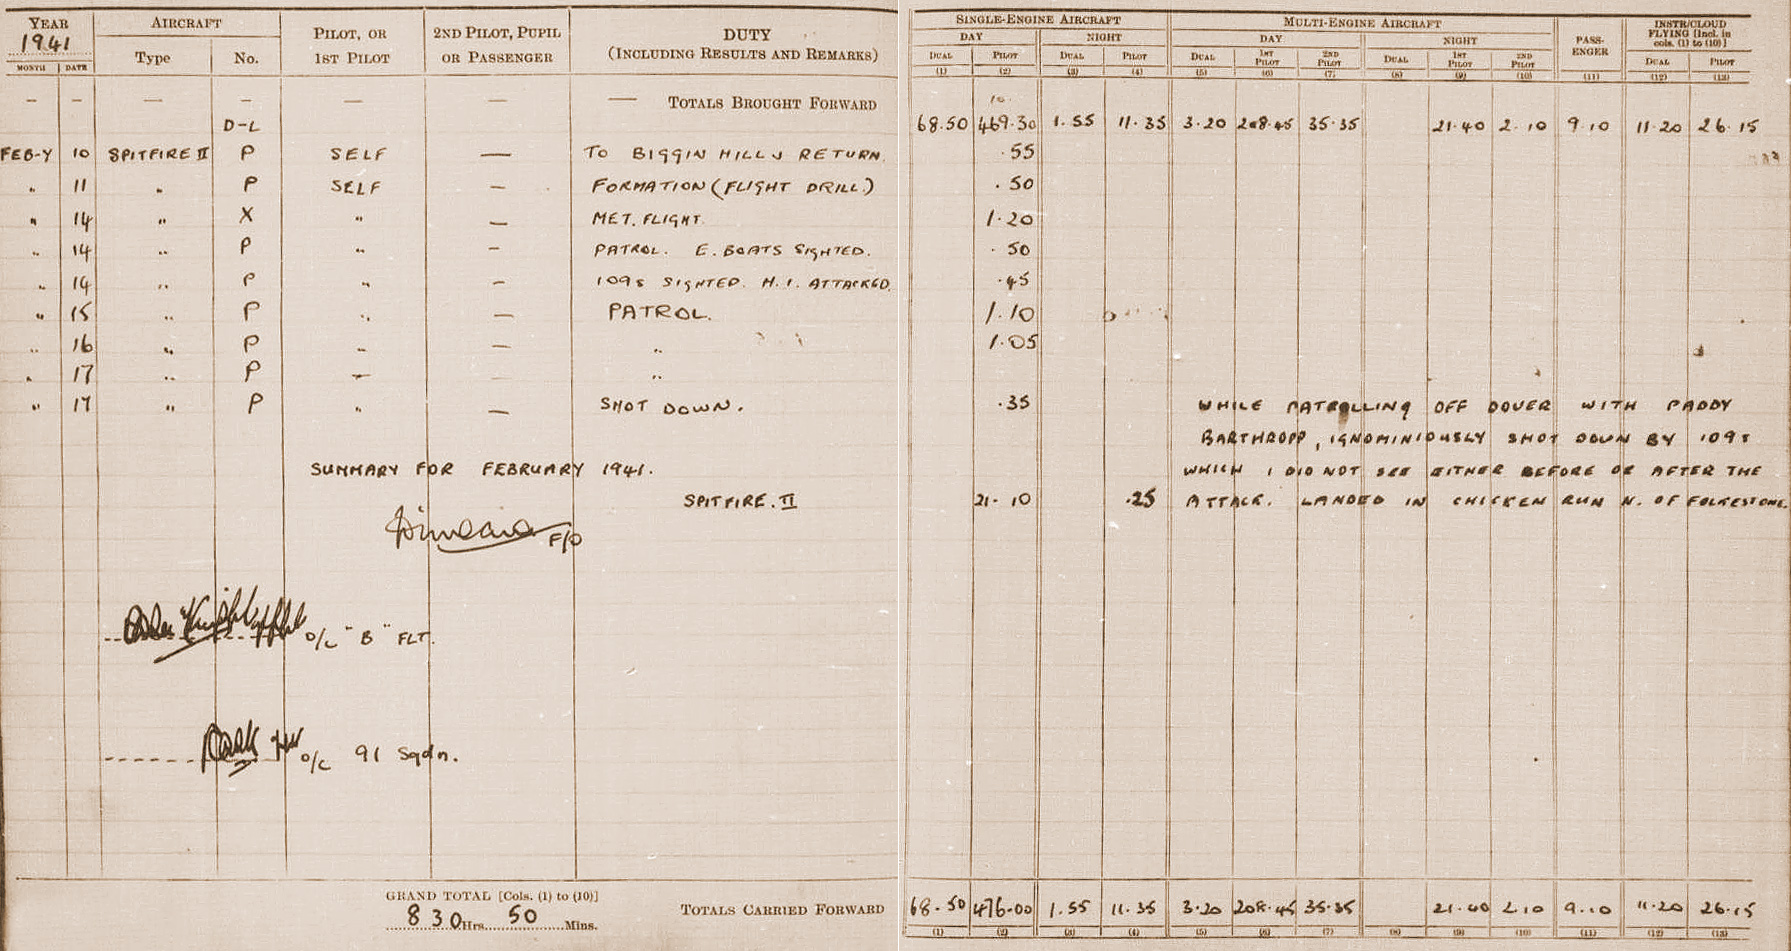 YEAR AIRCRAFT PILOT, OR 2ND PILOT, PUPIL DUTY SINGLE-ENGINE AIRCRAFT MULTI-ENGINE AIRCRAFT PASS- INSTR/CLOUD
1941 1ST PILOT OR PASSENGER (INCLUDING RESULTS AND REMARKS) DAY NIGHT DAY NIGHT ENGER FLYING [Incl. in
MONTH DATE Type No. DUAL PILOT DUAL PILOT DUAL 1ST PILOT 2ND PILOT DUAL 1ST PILOT 2ND PILOT cols. (1) to (10)] DUAL PILOT
(1) (2) (3) (4) (5) (6) (7) (8) (9) (10) (11) (12) (13)
— — — — — — — TOTALS BROUGHT FORWARD
D-L 68.50 469.30 1.55 11.35 3.20 208.45 35.35 21.40 2.10 9.10 11.20 26.15
FEB-Y 10 SPITFIRE II P SELF — TO BIGGIN HILL & RETURN. .55
" 11 " P SELF — FORMATION (FLIGHT DRILL) .50
" 14 " X " — MET. FLIGHT. 1.20
" 14 " P " — PATROL. E. BOATS SIGHTED. .50
" 14 " P " — 109s SIGHTED. H.I. ATTACKED. .45
" 15 " P " — PATROL. 1.10
" 16 " P " — " 1.05
" 17 " P " — "
" 17 " P " — SHOT DOWN. .35 WHILE PATROLLING OFF DOVER WITH PADDY
BARTHROPP, IGNOMINIOUSLY SHOT DOWN BY 109s
SUMMARY FOR FEBRUARY 1941. WHICH I DID NOT SEE EITHER BEFORE OR AFTER THE
SPITFIRE. II 21.10 .25 ATTACK. LANDED IN CHICKEN RUN N. OF FOLKESTONE.
F/O
O/C "B" FLT.
O/C 91 Sqdn.
GRAND TOTAL [Cols. (1) to (10)]
830 Hrs. 50 Mins. TOTALS CARRIED FORWARD 68.50 476.00 1.55 11.35 3.20 208.45 35.35 21.40 2.10 9.10 11.20 26.15
(1) (2) (3) (4) (5) (6) (7) (8) (9) (10) (11) (12) (13)